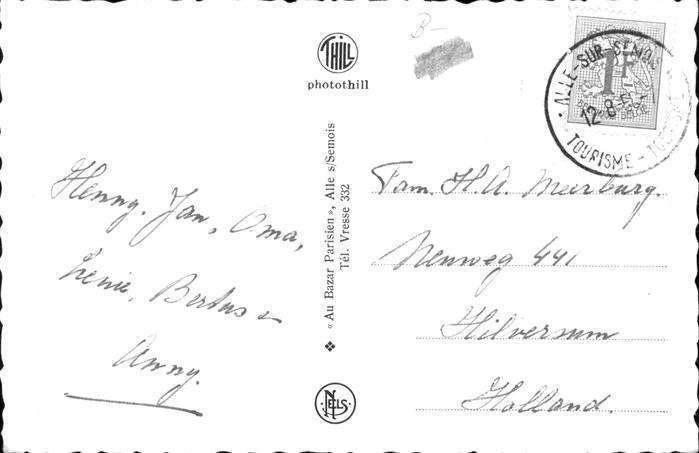 B-
THILL
photothill
1F
ALLE-SUR-SEMOIS
12-8
TOURISME - TOURISME
Henny. Jan, Oma,
Lenie, Bertus &
Anny.
« Au Bazar Parisien », Alle s/Semois
Tél. Vresse 332
NELS
Fam. H.A. Meerburg.
Neuweg 441
Hilversum
Holland.